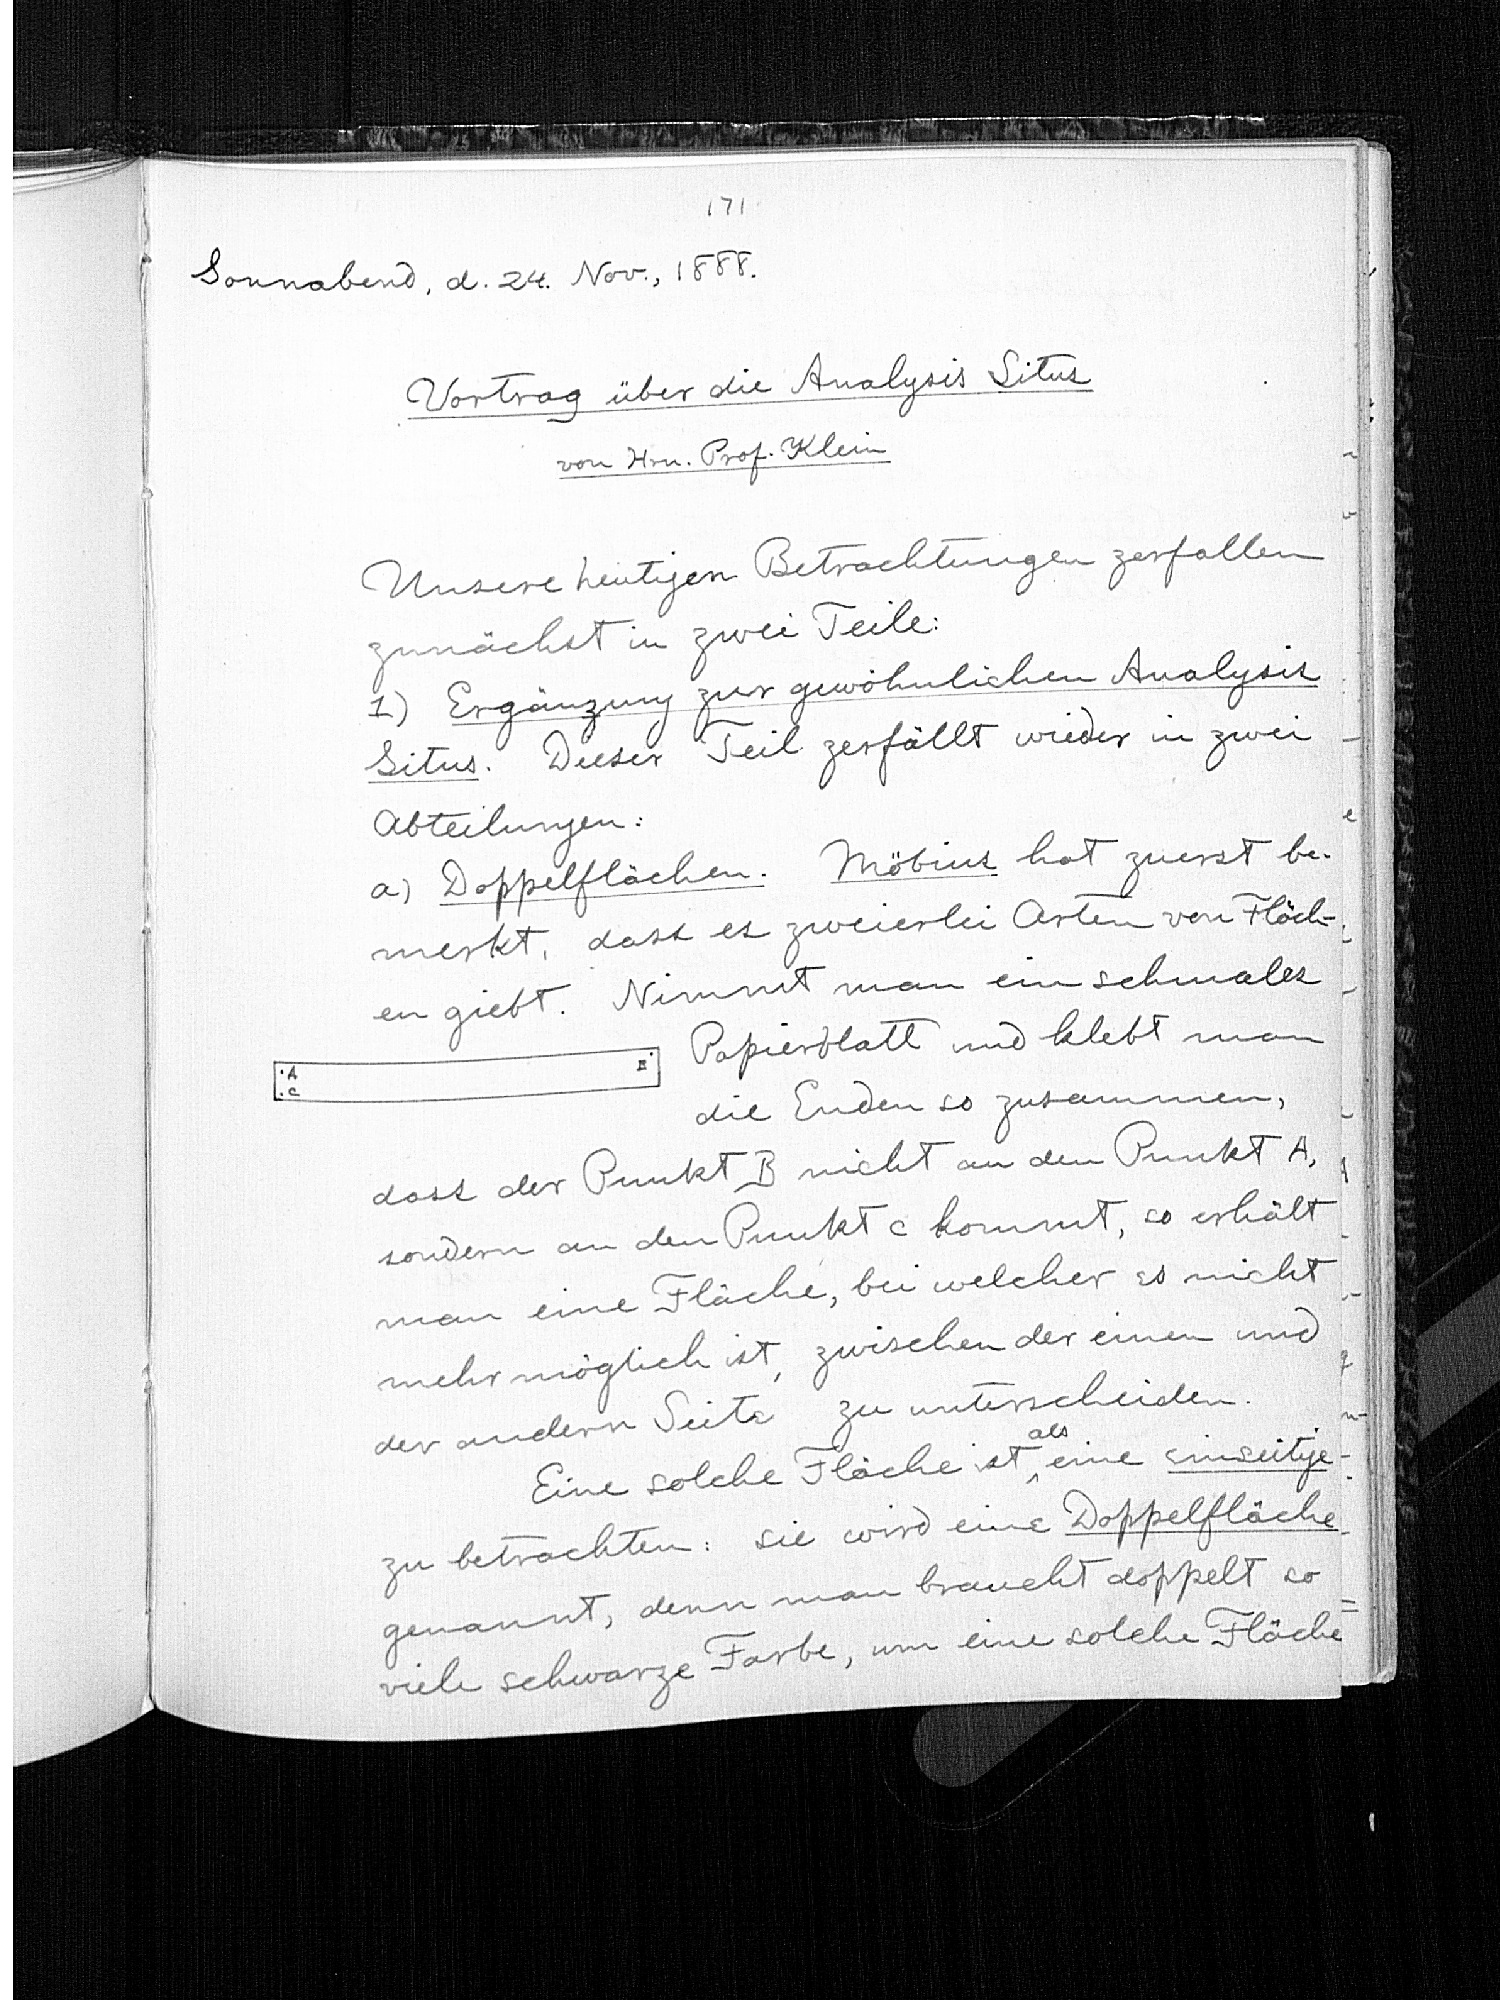 171
Sonnabend, d. 24. Nov., 1888.
Vortrag über die Analysis Situs
von Hrn. Prof. Klein
Unsere heutigen Betrachtungen zerfallen
zunächst in zwei Teile:
1) Ergänzung zur gewöhnlichen Analysis
Situs. Dieser Teil zerfällt wieder in zwei
Abteilungen:
a) Doppelflächen. Möbius hat zuerst be-
merkt, dass es zweierlei Arten von Fläch-
en giebt. Nimmt man ein schmales
Papierblatt und klebt man
A
B
C
die Enden so zusammen,
dass der Punkt B nicht an den Punkt A,
sondern an den Punkt C kommt, so erhält
man eine Fläche, bei welcher es nicht
mehr möglich ist, zwischen der einen und
der andern Seite zu unterscheiden.
Eine solche Fläche ist als eine einseitige
zu betrachten: sie wird eine Doppelfläche
genannt, denn man braucht doppelt so
viele schwarze Farbe, um eine solche Fläche